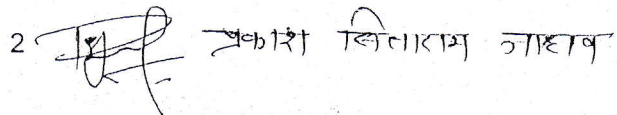 2 प्रकाश सिताराम जाधव